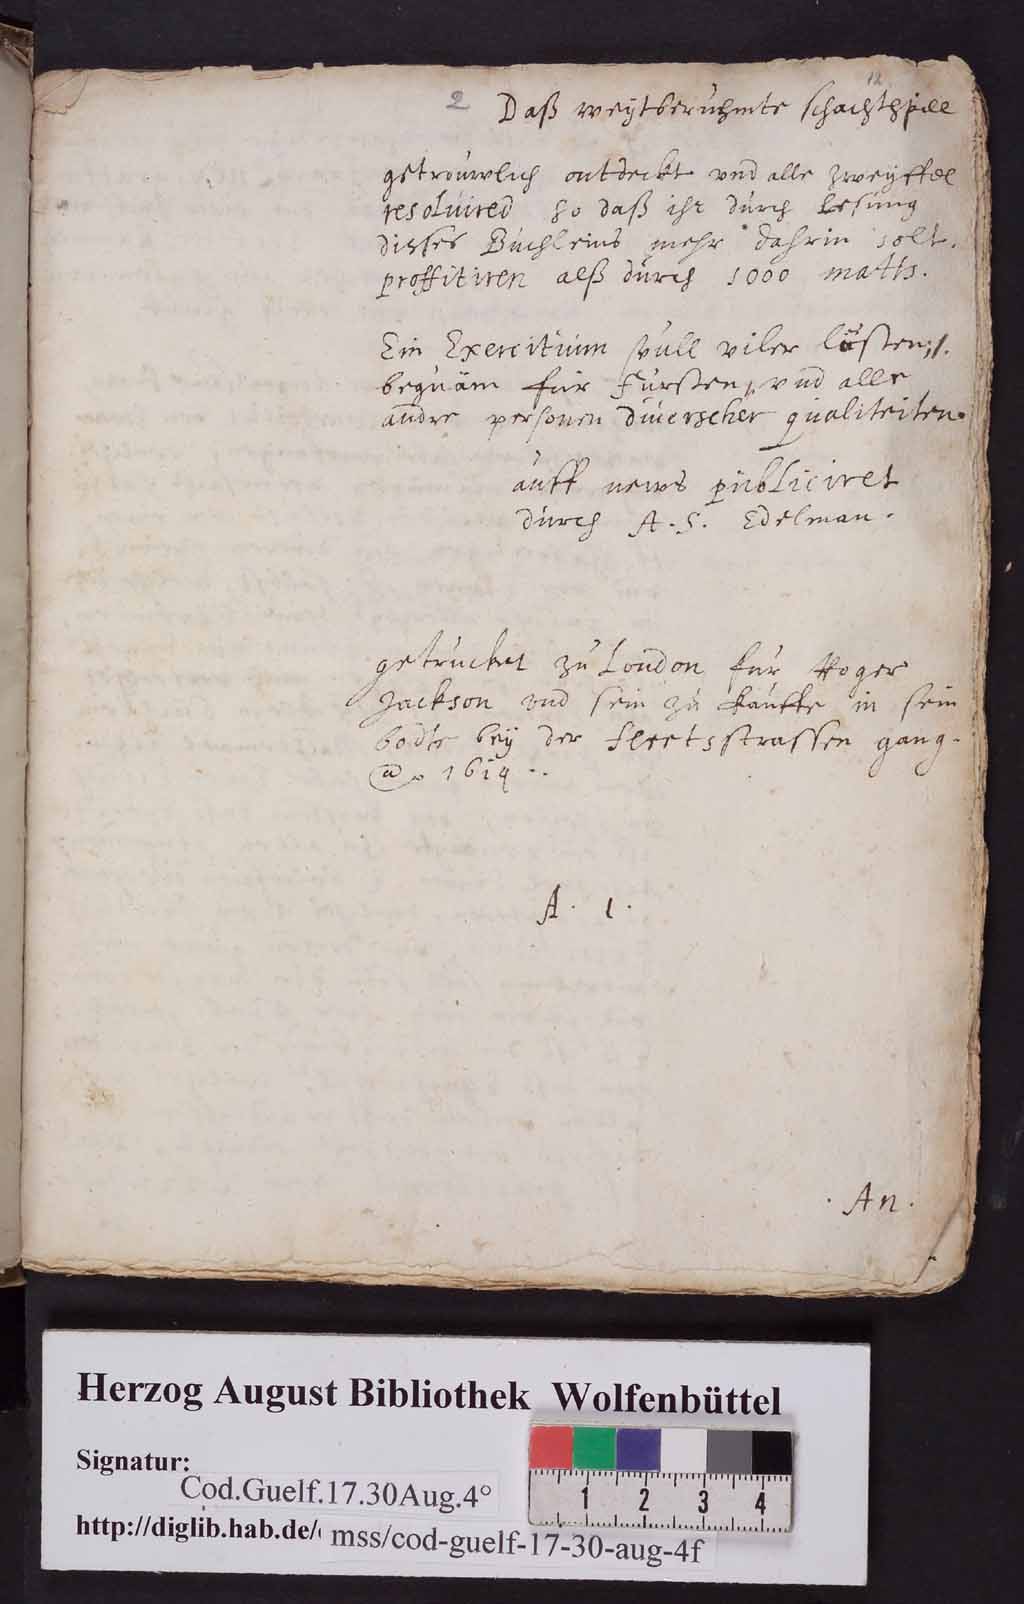 12
2 Daß weÿtberühmte schachthpill
getrouwlich ontdeckt vnd alle zweÿffel
resolvired so daß ihr durch lesung
disses Büchleins mehr dahrin solt
proffitiren alß durch 1000 matts.
Ein Exercitium vull viler lüsten,/.
bequäm für Fürsten, vnd alle
andre personen diverscher qualiteiten.
auff news publiciret
durch A. S. Edelman.
getrucket zu London für Roger
Jackson vnd sein zu kauffe in sein
bodie beÿ der fleetsstrassen gang.
ao 1614 ..
A. 1.
. An.
Herzog August Bibliothek Wolfenbüttel
Signatur:
Cod.Guelf.17.30Aug.4°
http://diglib.hab.de/
mss/cod-guelf-17-30-aug-4f
1 2 3 4